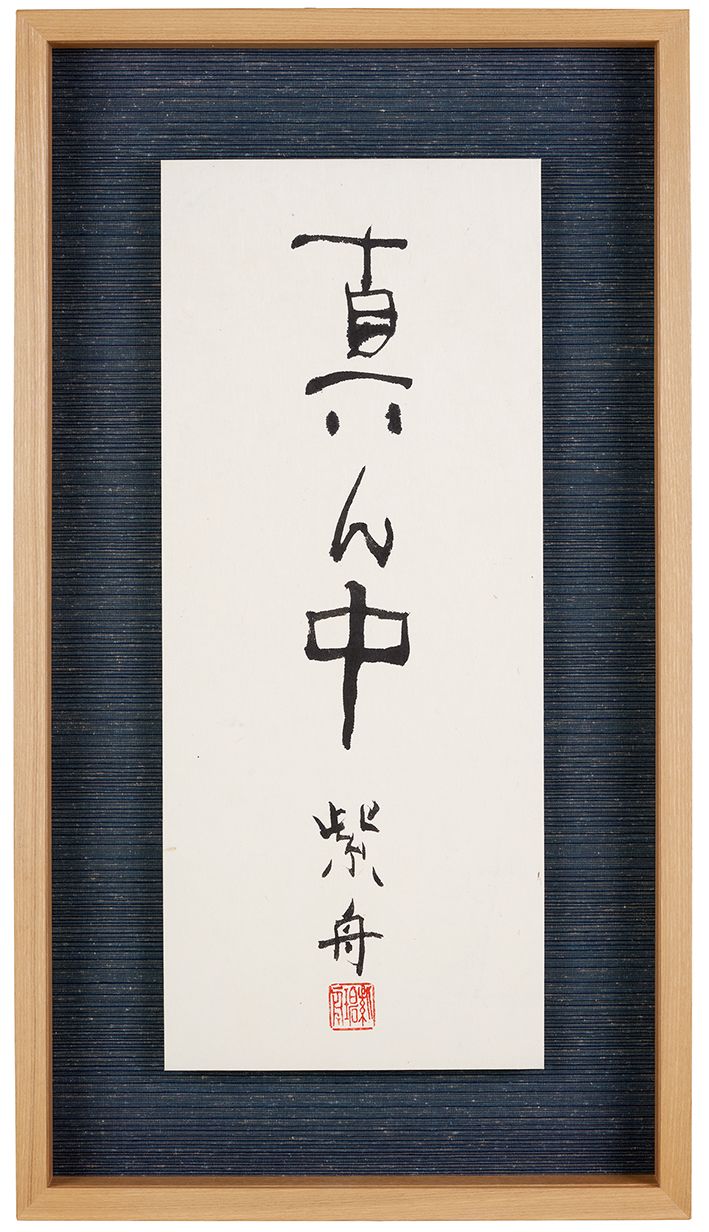 真ん中
紫舟